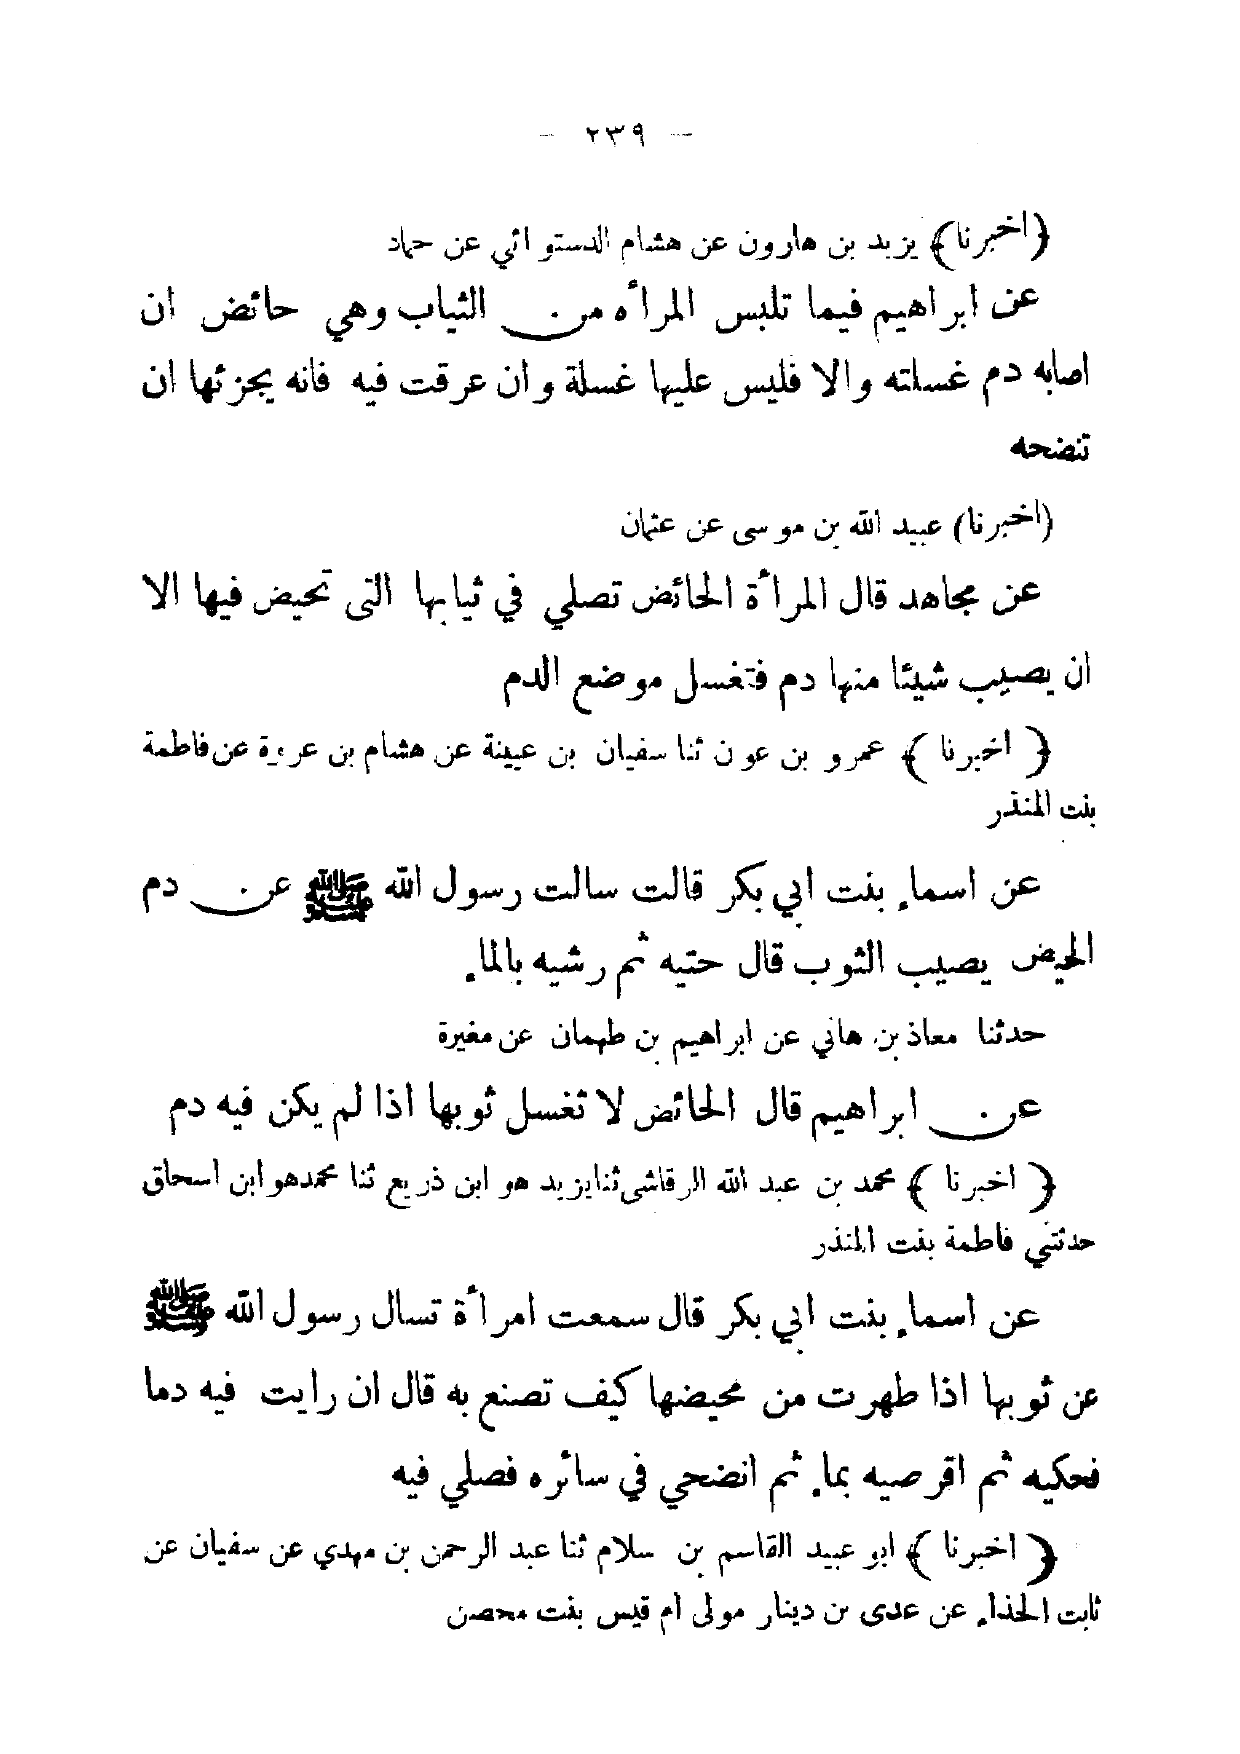 — ٢٣٩ —
﴿اخبرنا﴾ يزيد بن هارون عن هشام الدستوائي عن حماد
عن ابراهيم فيما تلبس المرأه من الثياب وهي حائض ان
اصابه دم غسلته والا فليس عليها غسلة وان عرقت فيه فانه يجزئها ان
تنضحه
(اخبرنا) عبيد الله بن موسى عن عثمان
عن مجاهد قال المرأة الحائض تصلي في ثيابها التى تحيض فيها الا
ان يصيب شيئا منها دم فتغسل موضع الدم
﴿ اخبرنا ﴾ عمرو بن عون ثنا سفيان بن عيينة عن هشام بن عروة عن فاطمة
بنت المنذر
عن اسماء بنت ابي بكر قالت سالت رسول الله ﷺ عن دم
الحيض يصيب الثوب قال حتيه ثم رشيه بالماء
حدثنا معاذ بن هاني عن ابراهيم بن طهمان عن مغيرة
عن ابراهيم قال الحائض لا تغسل ثوبها اذا لم يكن فيه دم
﴿ اخبرنا ﴾ محمد بن عبد الله الرقاشى ثنا يزيد هو ابن ذريع ثنا محمد هو ابن اسحاق
حدثتني فاطمة بنت المنذر
عن اسماء بنت ابي بكر قال سمعت امرأة تسال رسول الله ﷺ
عن ثوبها اذا طهرت من محيضها كيف تصنع به قال ان رايت فيه دما
فحكيه ثم اقرصيه بماء ثم انضحي في سائره فصلي فيه
﴿ اخبرنا ﴾ ابو عبيد القاسم بن سلام ثنا عبد الرحمن بن مهدي عن سفيان عن
ثابت الحذاء عن عدى بن دينار مولى ام قيس بنت محصن